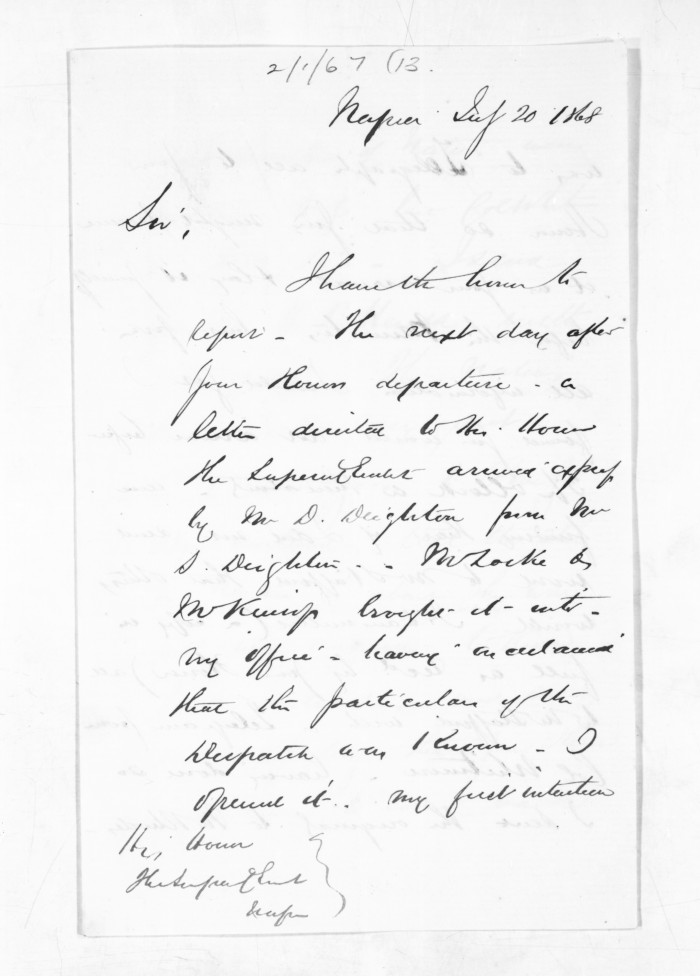 2/1/67 (13.
Napier July 20 1868
Sir,
I have the honor to
report - The next day after
your Honors departure - a
letter directed to His Honor
the Superintendent arrived
by Mr D. Deighton from Mr
S. Deighton - Mr Locke &
brought it into
my office - having ascertained
that the particulars of the
Despatch was Known - I
opened it. my first intention
His Honor
The Superintendent
Napier